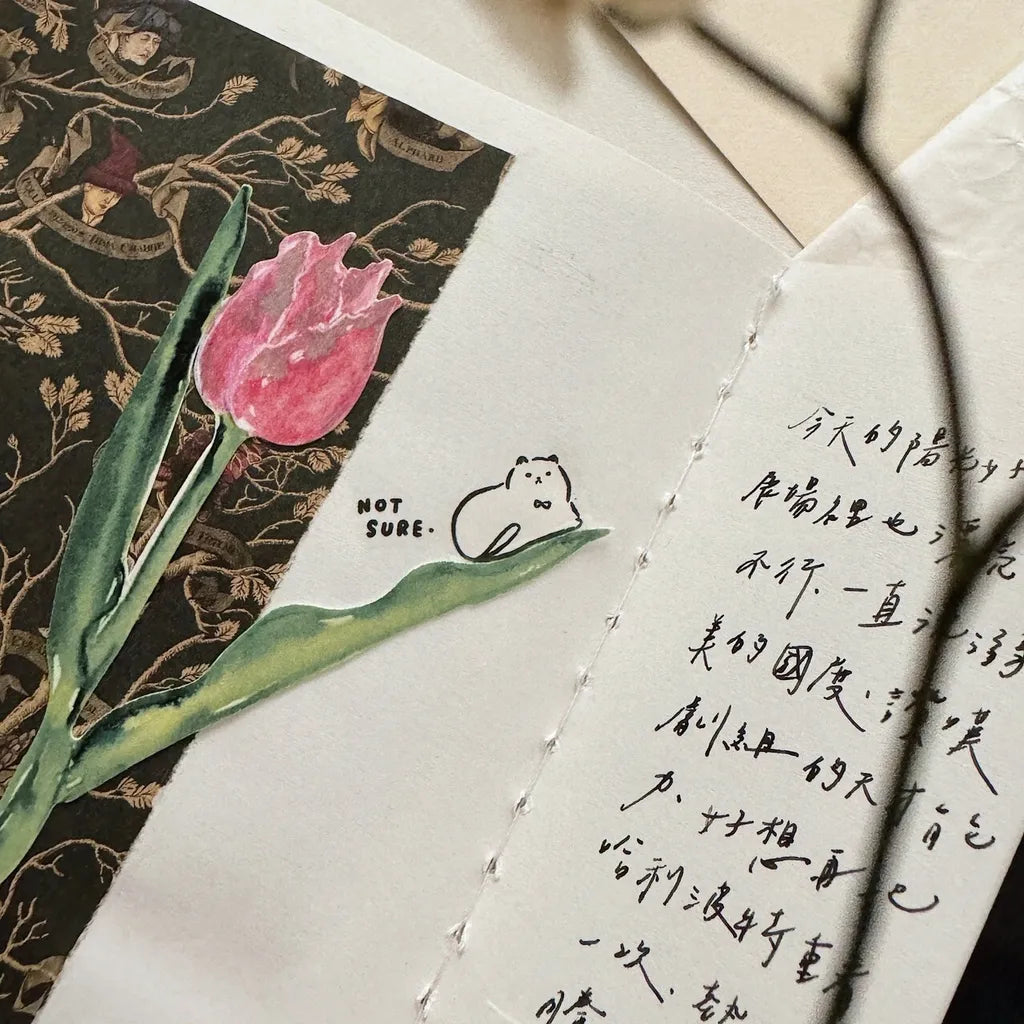 ALPHARD
NOT
SURE.
今天的陽光
展場裡也漂亮
不行、一直沉溺
美的國度、讚嘆
劇組的天才
力、好想再把
哈利波特重看
一次、熱
騰